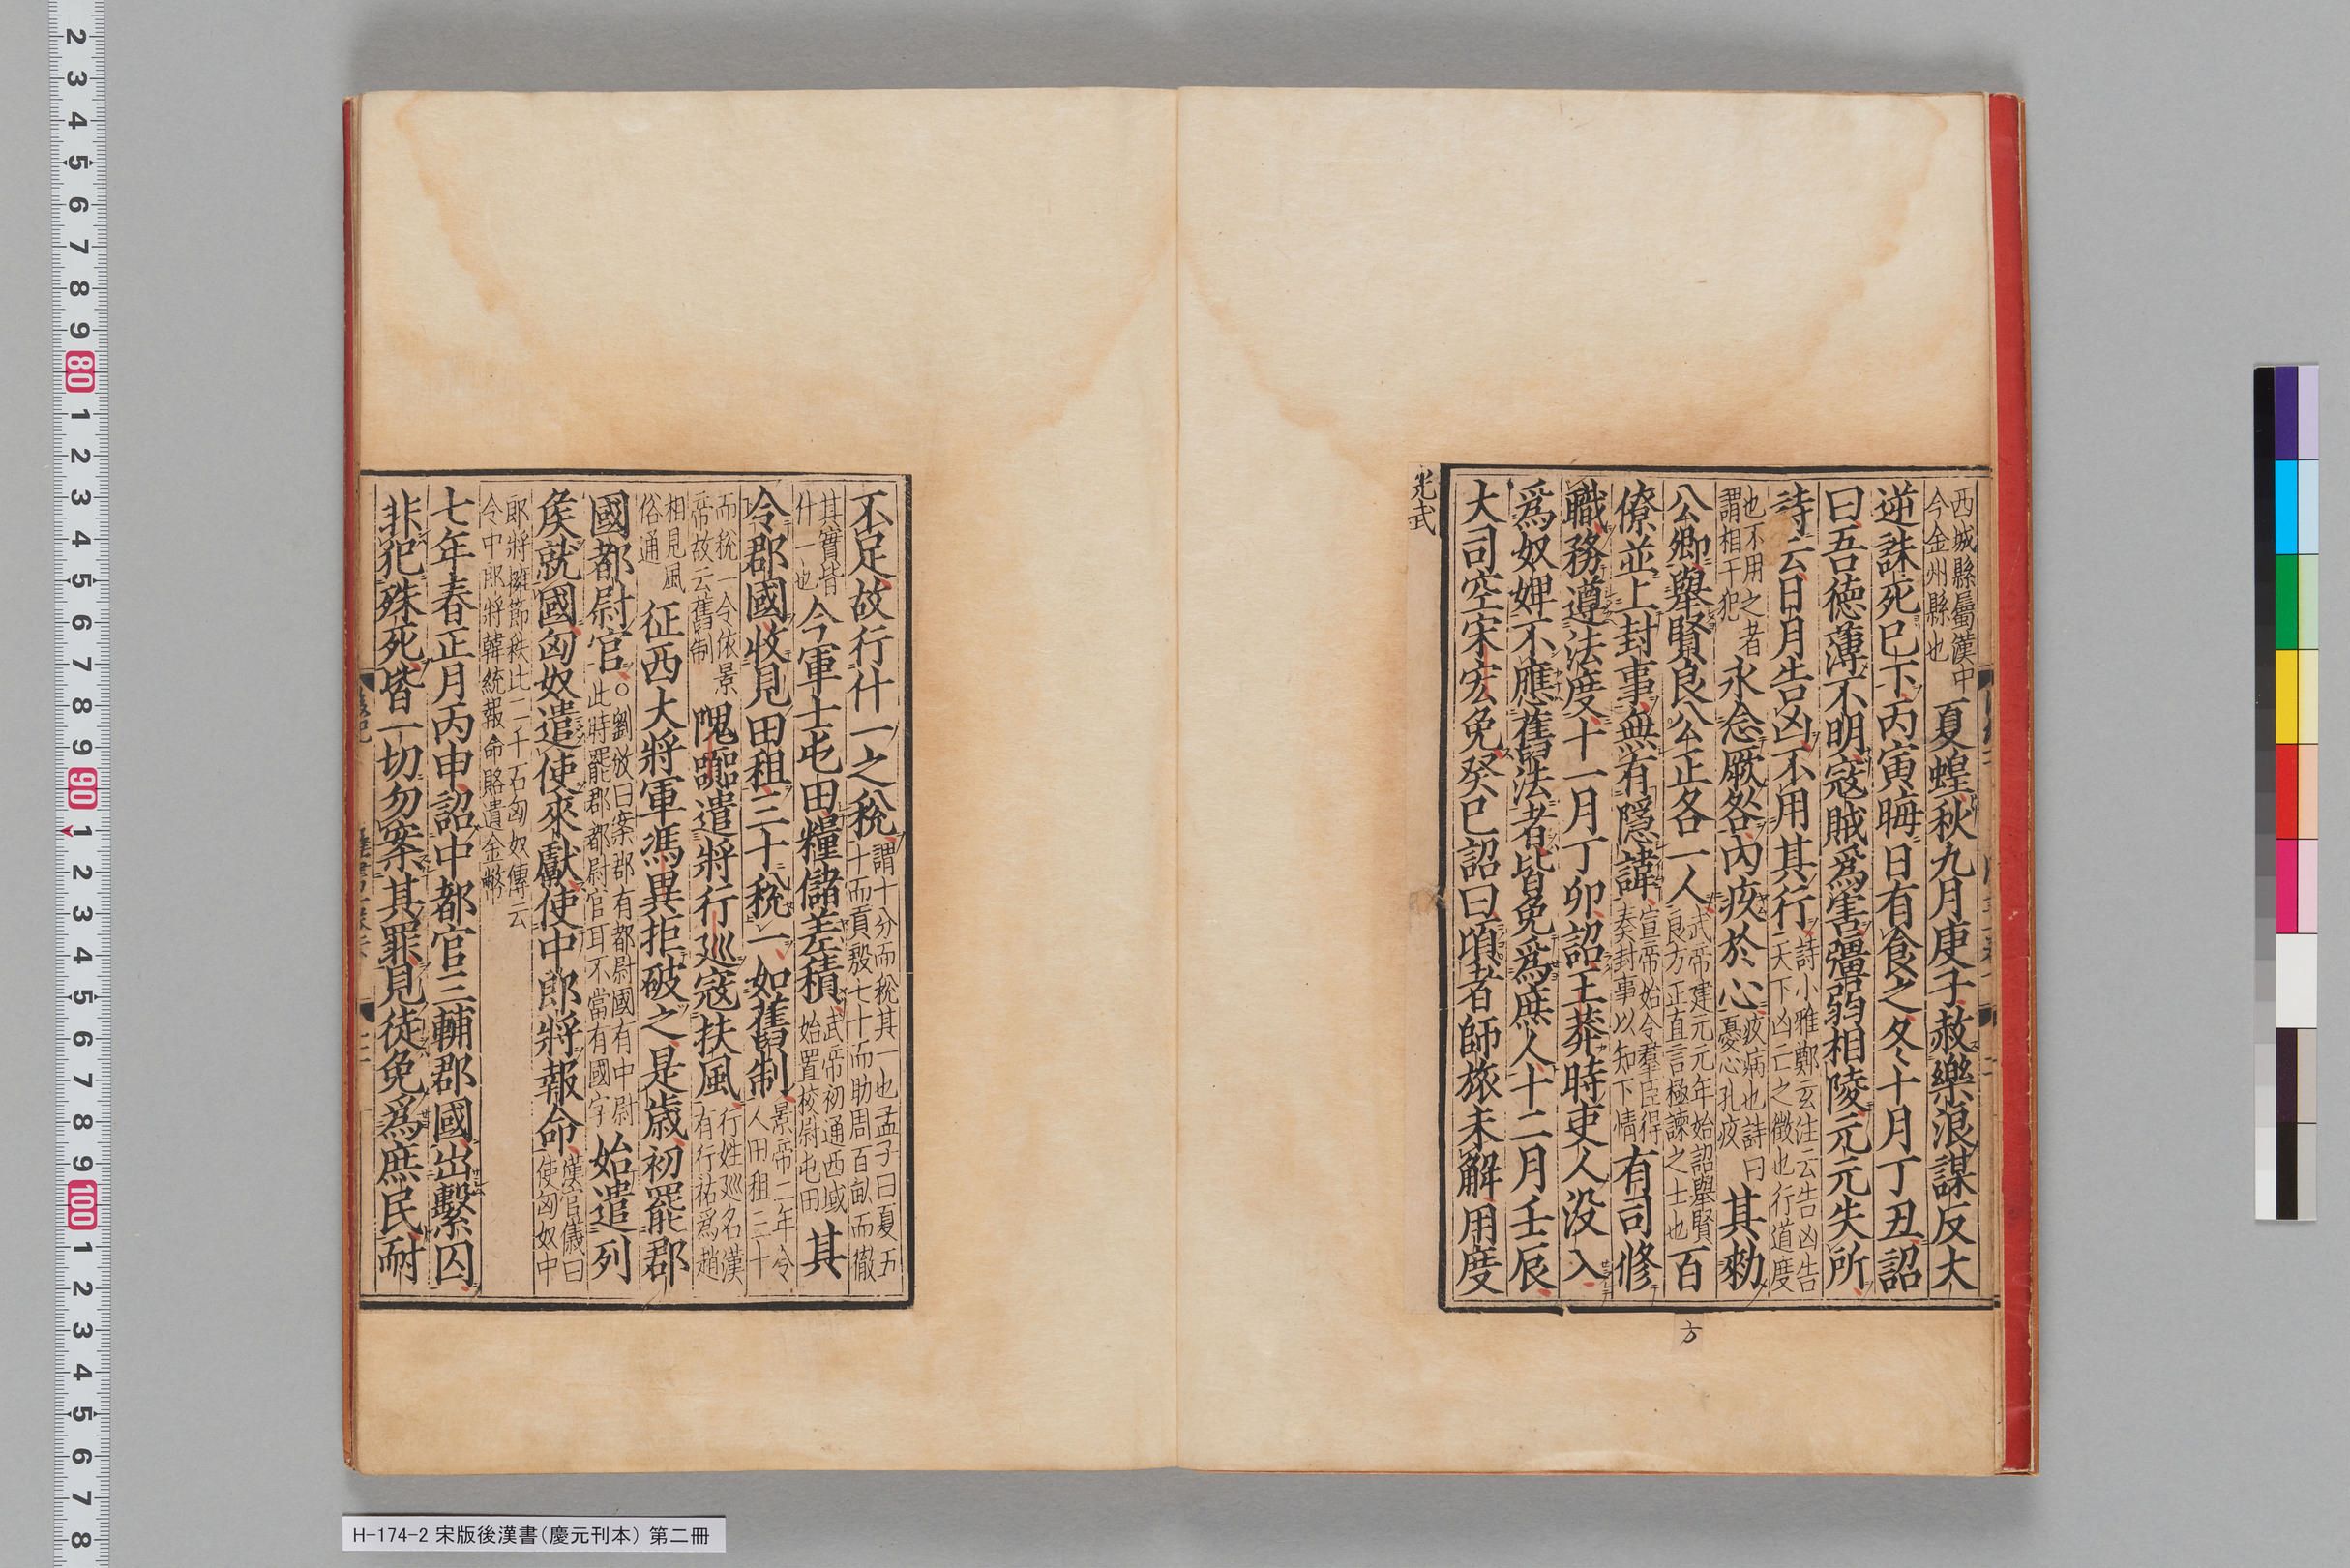 西城縣屬漢中
今金州縣也
夏蝗秋九月庚子赦樂浪謀反大
逆誅死已下丙寅晦日有食之冬十月丁丑詔
曰吾德薄不明寇賊爲害彊弱相陵元元失所
詩云日月告凶不用其行
詩小雅鄭玄注云告凶告
天下凶亡之徵也行道度
也不用之者
謂相干犯
永念厥咎內疚於心
疚病也詩曰
憂心孔疚
其勑
公卿舉賢良公正各一人
武帝建元元年始詔舉賢
良方正直言極諫之士也
百
僚並上封事無有隱諱
宣帝始令羣臣得
奏封事以知下情
有司修
職務遵法度十一月丁卯詔王莽時吏人没入
爲奴婢不應舊法者皆免爲庶人十二月壬辰
大司空宋宏免癸巳詔曰頃者師旅未解用度
光武
方
不足故行什一之稅
謂十分而稅其一也孟子曰夏五
十而貢殷七十而助周百畝而徹
其實皆
什一也
今軍士屯田糧儲差積
武帝初通西域
始置校尉屯田
其
令郡國收見田租三十稅一如舊制
景帝二年令
人田租三十
而稅一今依景
帝故云舊制
隗囂遣將行巡寇扶風
行姓巡名漢
有行祐爲趙
相見風
俗通
征西大將軍馮異拒破之是歲初罷郡
國都尉官
○劉攽曰案郡有都尉國有中尉
此時罷郡都尉官耳不當有國字
始遣列
矦就國匈奴遣使來獻使中郎將報命
漢官儀曰
使匈奴中
郎將擁節秩比二千石匈奴傳云
令中郎將韓統報命賂遺金幣
七年春正月丙申詔中都官三輔郡國出繫囚
非犯殊死皆一切勿案其罪見徒免爲庶民耐
H-174-2 宋版後漢書（慶元刊本） 第二冊